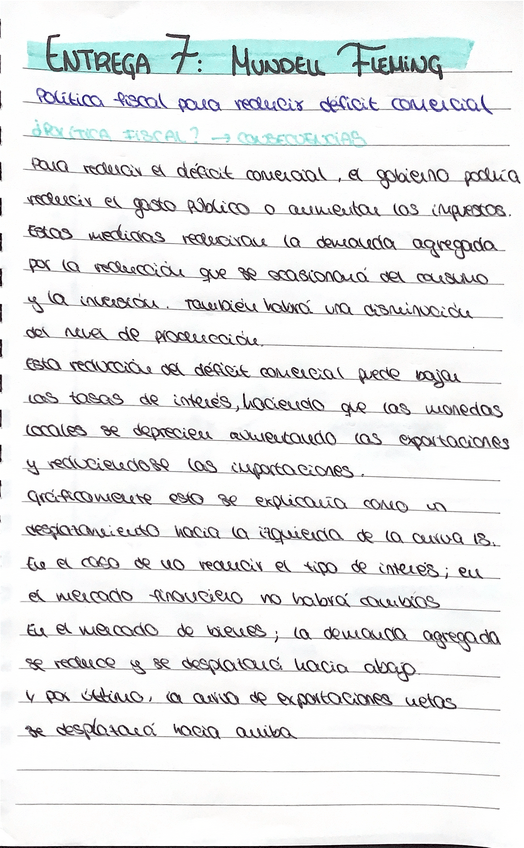 ENTREGA 7: MUNDELL FLEMING
Política fiscal para reducir déficit comercial
¿POLÍTICA FISCAL? → CONSECUENCIAS
Para reducir el déficit comercial, el gobierno podría
reducir el gasto público o aumentar los impuestos.
Estas medidas reducirán la demanda agregada
por la reducción que se ocasionará del consumo
y la inversión. También habrá una disminución
del nivel de producción.
Esta reducción del déficit comercial puede bajar
las tasas de interés, haciendo que las monedas
locales se deprecien aumentando las exportaciones
y reduciendose las importaciones.
Gráficamente esto se explicaría como un
desplazamiento hacia la izquierda de la curva IS.
En el caso de no reducir el tipo de interés; en
el mercado financiero no habrá cambios
En el mercado de bienes; la demanda agregada
se reduce y se desplazará hacia abajo.
Y por último, la curva de exportaciones netas
se desplazará hacia arriba